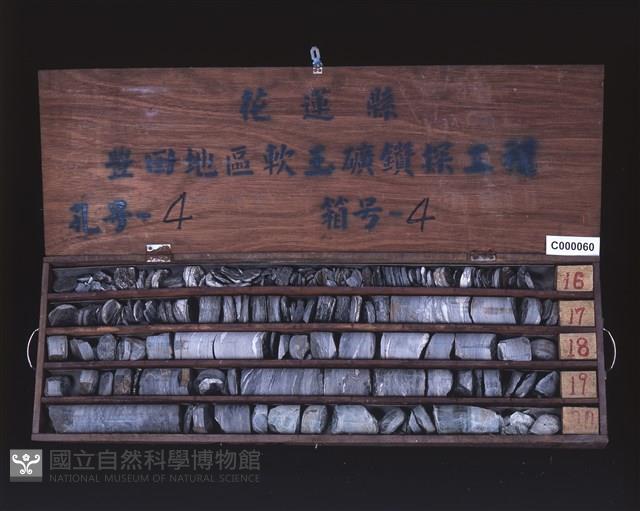 花蓮縣
豐田地區軟玉礦鑽探工程
孔号-4 箱号-4
C000060
16
17
18
19
20
國立自然科學博物館
NATIONAL MUSEUM OF NATURAL SCIENCE